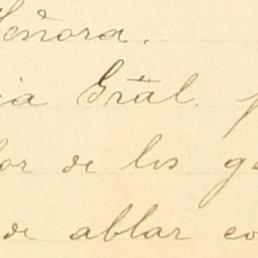 Señora.
ia Gräl.
or de los g
de ablar co